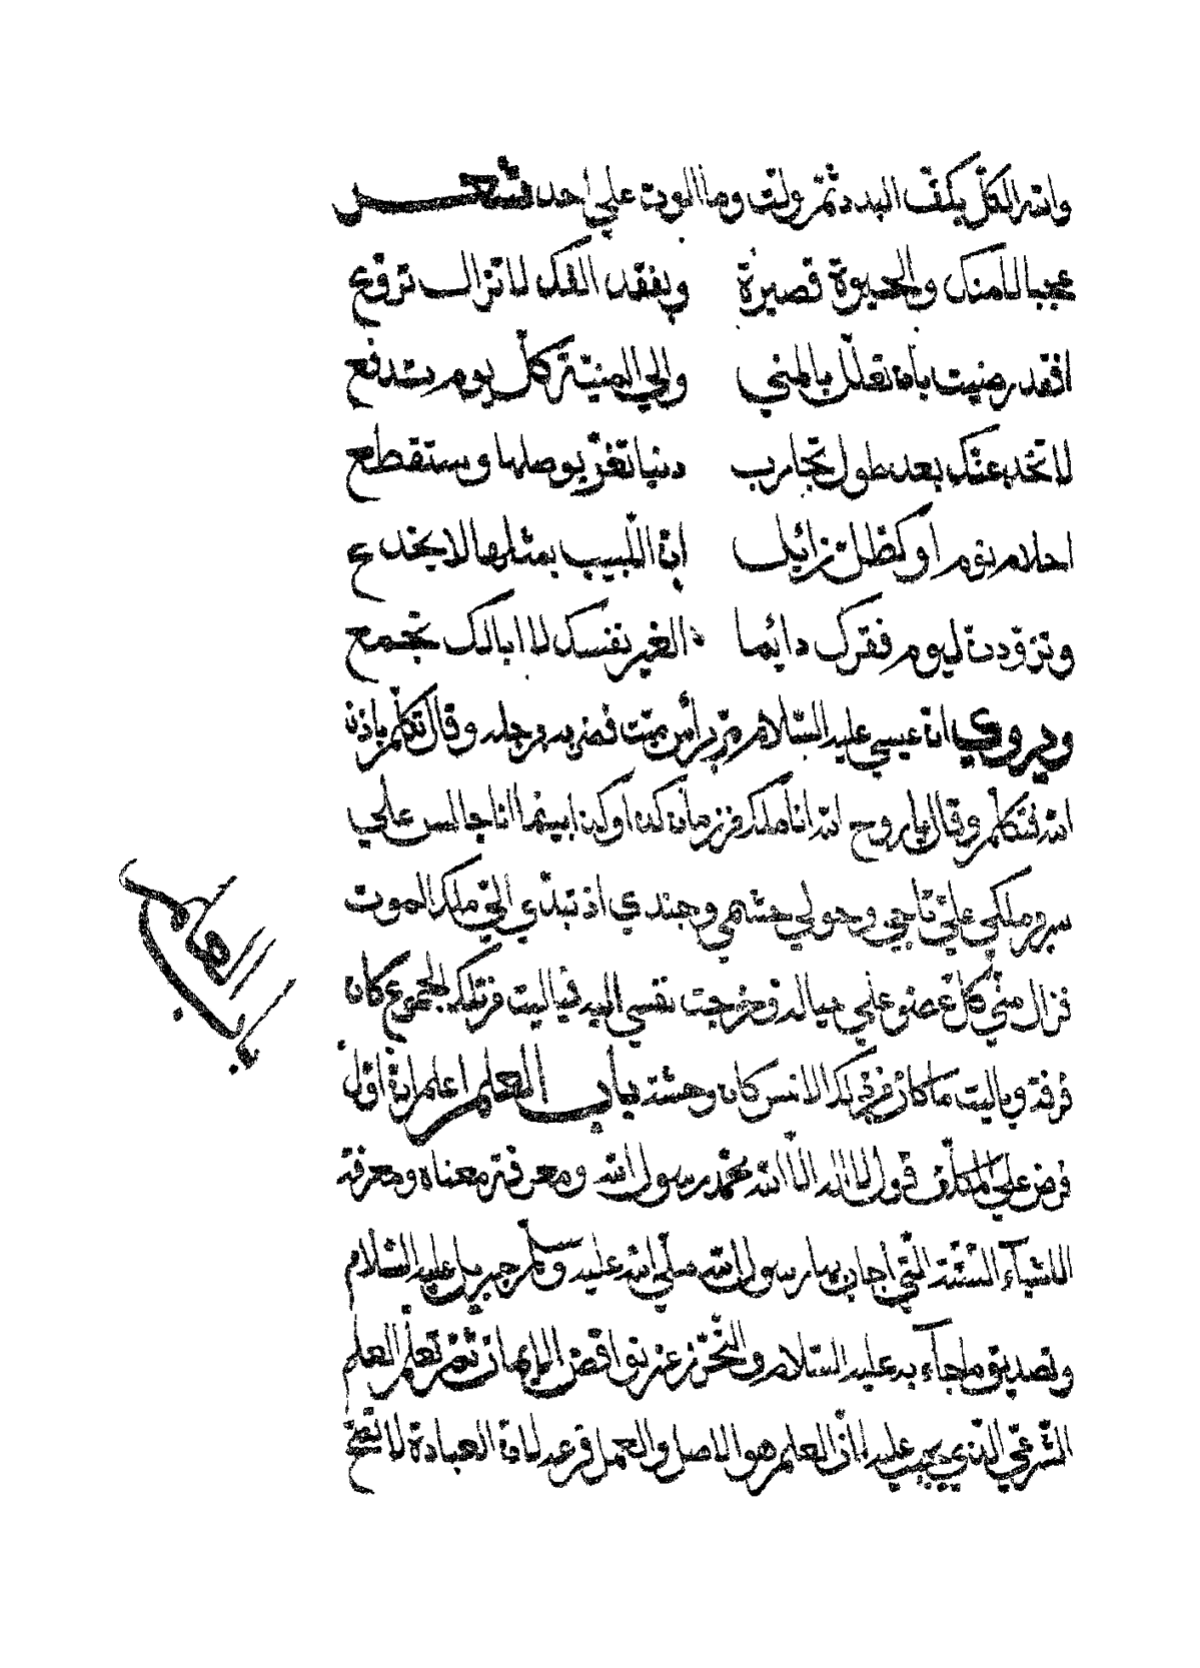 وانته الكلّ يكفّ البدد ثمّ ولّت وما الموت على احد شعر
عجبا لامنك والحيوة قصيرة وبفقد الفك لا تزال تروّع
افقد رضيت بان تعلّل بالمني والي المنيّة كلّ يوم تدفع
لا تخدعنّك بعد طول تجارب دنيا تغرّ بوصلها وستقطع
احلام نوم او كظلّ زائل انّ اللّبيب بمثلها لا يخدع
وتزوّدنّ ليوم فقرك دائما الغير نفسك لا ابالك تجمع
وروي ان عيسي عليه السّلام مرّ برأس ميّت فضربه برجله وقال تكلّم باذن
الله فتكلّم وقال يا روح الله انا ملك في زمان كذا وكذا بينما انا جالس علي
سرير ملكي عليّ تاجي وحولي حشمي وجندي اذ تبدّي اليّ ملك الموت
فزال منّي كلّ عضو علي حياله وخرجت نفسي اليه فيا ليت في تلك الجموع كان
فرقة ويا ليت ما كان في ذلك الانس كان وحشة باب العلم اعلم انّ اوّل
فرض علي المكلّف قول لا اله الّا الله محمّد رسول الله ومعرفة معناه ومعرفة
الاشيآء السّتّة الّتي اجاب بها رسول الله صلّي الله عليه وسلّم جبريل عليه السّلام
وتصديق ما جآء به عليه السّلام والتّحرّز عن نواقض الايمان ثمّ تعلّم العلم
الشّرعيّ الّذي يجب عليه اذ العلم هو الاصل والعمل فرعه لان العبادة لا تصحّ
باب العلم